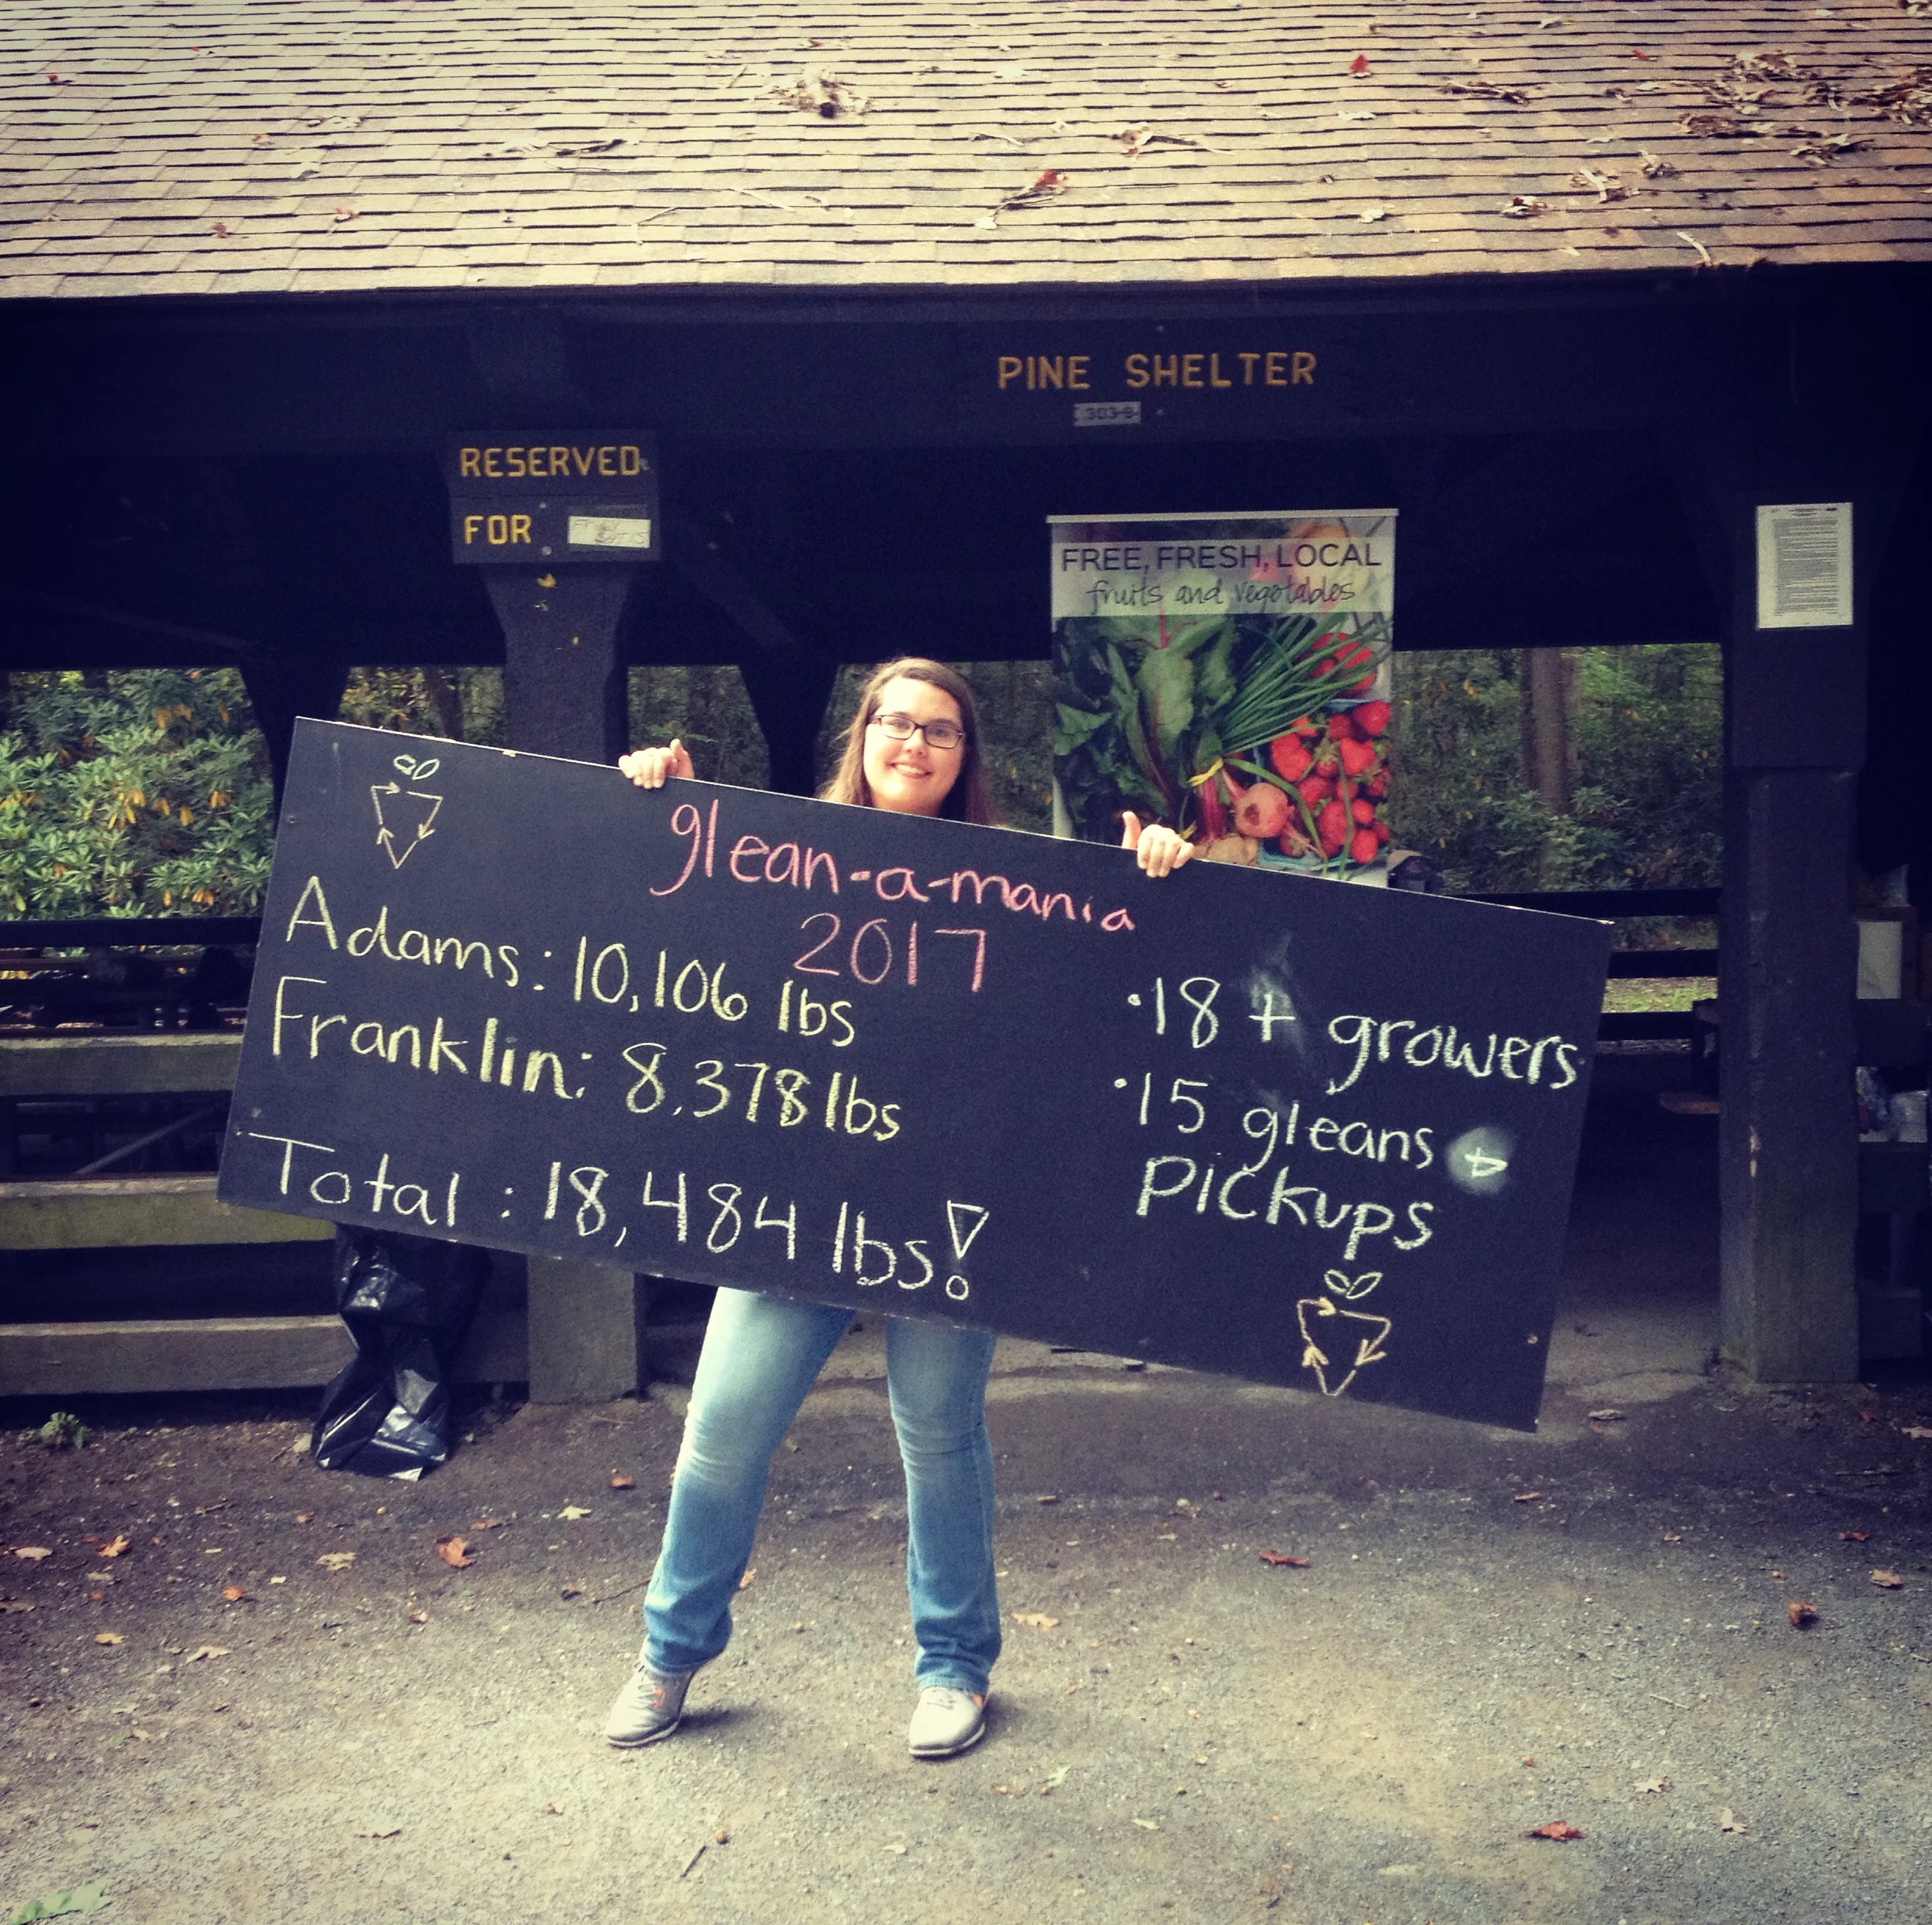 PINE SHELTER
303-9
RESERVED
FOR
FREE, FRESH, LOCAL
fruits and vegetables
glean-a-mania
2017
Adams: 10,106 lbs
Franklin: 8,378 lbs
Total: 18,484 lbs!
• 18 + growers
• 15 gleans +
Pickups